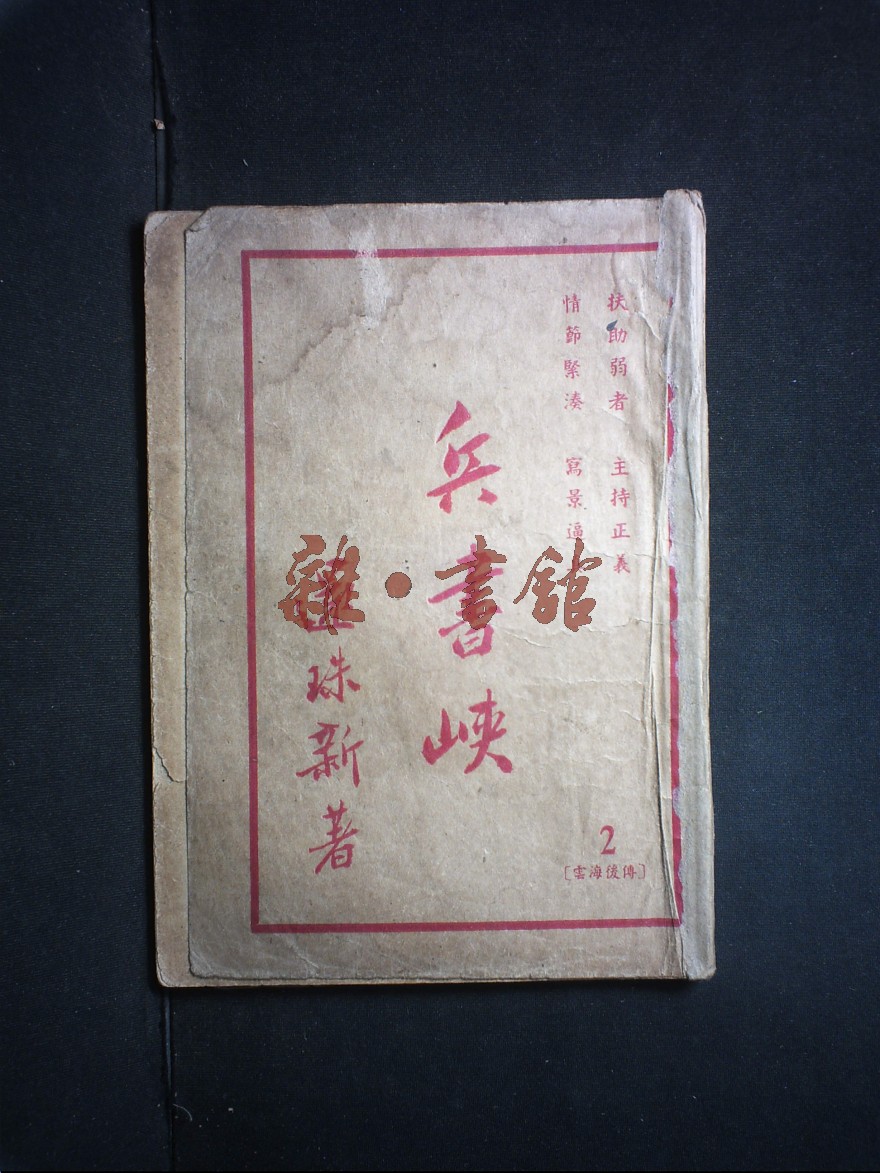 扶助弱者 主持正義
情節緊湊 寫景逼
兵書峽
珠新著
2
〔雲海後傳〕
雜·書館